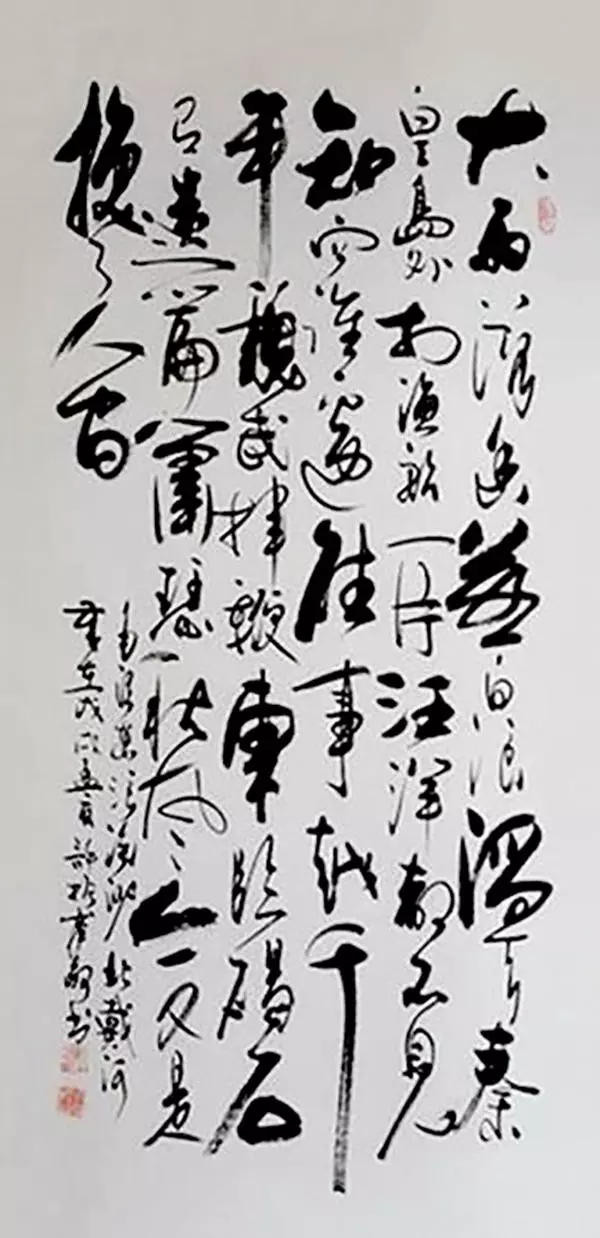 大雨落幽燕白浪滔天秦
皇島外打渔船一片汪洋都不見
知向谁邊往事越千
年魏武挥鞭東临碣石
有遗篇萧瑟秋风今又是
换了人间
毛泽东浪淘沙北戴河
岁在戊戌孟夏 书